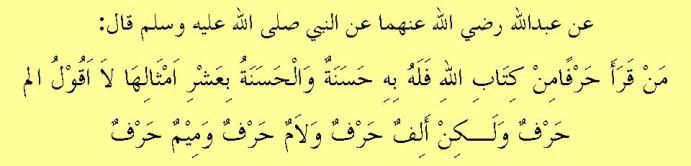 عن عبدالله رضي الله عنهما عن النبي صلى الله عليه وسلم قال:
مَنْ قَرَأَ حَرْفًامِنْ كِتَابِ اللهِ فَلَهُ بِهِ حَسَنَةٌ وَالْحَسَنَةُ بِعَشْرِ اَمْثَالِهَا لاَ اَقُوْلُ الم
حَرْفٌ وَلَـــكِنْ أَلِفٌ حَرْفٌ وَلاَمٌ حَرْفٌ وَمِيْمٌ حَرْفٌ